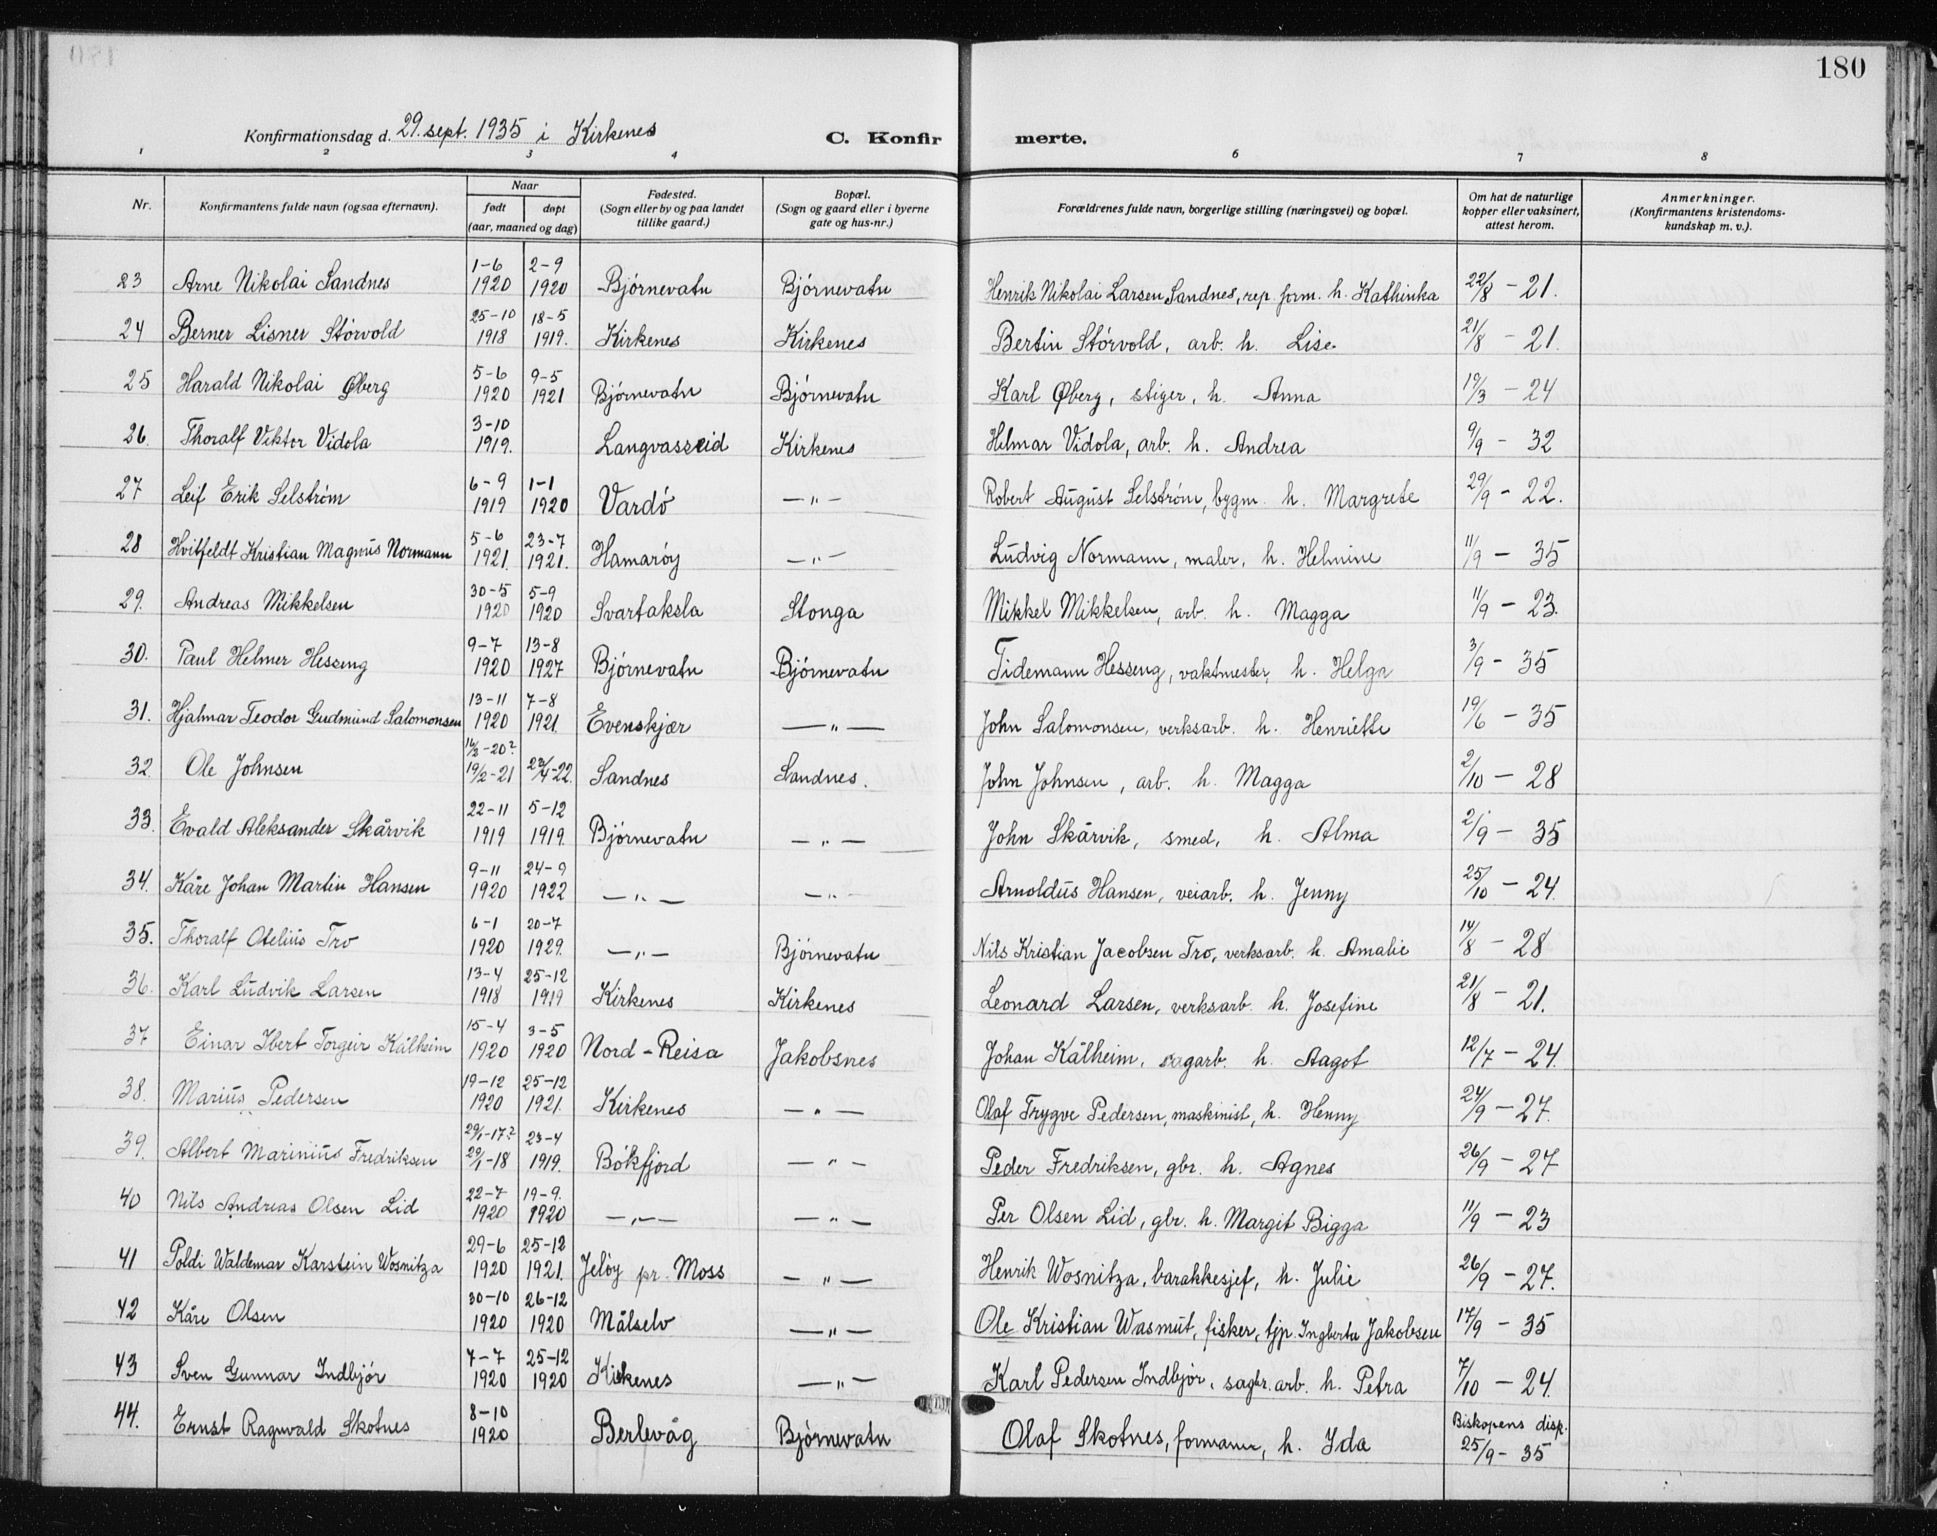 180
Konfirmationsdag d. 29. sept. 1935 i Kirkenes C. Konfir merte.
1 2 3 4 6 7 8
Nr. Konfirmantens fulde navn (ogsaa efternavn). Naar født døpt (aar, maaned og dag) Fødested. (Sogn eller by og paa landet tillike gaard.) Bopæl. (Sogn og gaard eller i byerne gate og hus-nr.) Forældrenes fulde navn, borgerlige stilling (næringsvei) og bopæl. Om hat de naturlige kopper eller vaksinert, attest herom. Anmerkninger. (Konfirmantens kristendoms-kundskap m. v.).
23 Arne Nikolai Sandnes 1-6 1920 2-9 1920 Bjørnevatn Bjørnevatn Henrik Nikolai Larsen Sandnes, rep. form. h. Kathinka 22/8 - 21.
24 Berner Lisner Störvold 25-10 1918 18-5 1919. Kirkenes Kirkenes Bertin Störvold, arb. h. Lise. 21/8 - 21.
25 Harald Nikolai Øberg 5-6 1920 9-5 1921 Bjørnevatn Bjørnevatn Karl Øberg, stiger, h. Anna 19/3 - 24
26. Thoralf Viktor Vidola 3-10 1919. Langvasseid Kirkenes Helmar Vidola, arb. h. Andrea 9/9 - 32
27 Leif Erik Selström 6-9 1919 1-1 1920 Vardö -"- Robert August Selström, bygm. h. Margrete 29/9 - 22.
28 Hvitfeldt Kristian Magnus Normann 5-6 1921. 23-7 1921. Hamaröy -"- Ludvig Normann, maler, h. Helmine 11/9 - 35
29. Andreas Mikkelsen 30-5 1920 5-9 1920 Svartaksla Stonga Mikkel Mikkelsen, arb. h. Magga 11/9 - 23.
30. Paul Helmer Hesseng 9-7 1920 13-8 1927 Bjørnevatn Bjørnevatn Tidemann Hesseng, vaktmester, h. Helga 3/9 - 35
31. Hjalmar Teodor Gudmund Salomonsen 13-11 1920 7-8 1921. Evenskjær -"- John Salomonsen, verksarb. h. Henriette 19/6 - 35
32. Ole Johnsen 16/3-20? 19/2-21 22/4-22. Sandnes Sandnes. John Johnsen, arb. h. Magga 2/10 - 28
33. Evald Aleksander Skårvik 22-11 1919 5-12 1919. Bjørnevatn -"- John Skårvik, smed, h. Alma 2/9 - 35
34. Kåre Johan Martin Hansen 9-11 1920 24-9 1922 -"- -"- Arnoldus Hansen, veiarb. h. Jenny 25/10 - 24.
35. Thoralf Otelius Tro 6-1 1920 20-7 1929. -"- Bjørnevatn Nils Kristian Jacobsen Tro, verksarb. h. Amalie 14/8 - 28
36. Karl Ludvik Larsen 13-4 1918 25-12 1919 Kirkenes Kirkenes Leonard Larsen, verksarb. h. Josefine 21/8 - 21.
37 Einar Ibert Torgeir Kålheim 15-4 1920 3-5 1920 Nord-Reisa Jakobsnes Johan Kålheim, sagarb. h. Aagot 12/7 - 24.
38. Marius Pedersen 19-12 1920 25-12 1921. Kirkenes -"- Olaf Trygve Pedersen, maskinist, h. Henny 24/9 - 27.
39. Albert Marinius Fredriksen 29/1-17? 29/1-18 23-4 1919. Bökfjord -"- Peder Fredriksen, gbr. h. Agnes 26/9 - 27
40 Nils Andreas Olsen Lid 22-7 1920 19-9. 1920 -"- -"- Per Olsen Lid, gbr. h. Margit Bigga 11/9 - 23
41 Poldi Waldemar Karstein Wosnitza 29-6 1920 25-12 1921. Jelöy pr. Moss -"- Henrik Wosnitza, barakkesjef, h. Julie 26/9 - 27.
42 Kåre Olsen 30-10 1920 26-12 1920 Målselv -"- Ole Kristian Wasmut, fisker, tjp. Ingberta Jakobsen 17/9 - 35
43 Sven Gunnar Indbjör 7-7 1920 25-12 1920 Kirkenes -"- Karl Pedersen Indbjör, sagbr. arb. h. Petra 7/10 - 24.
44. Ernst Ragnvald Skotnes 8-10 1920 Berlevåg Bjørnevatn Olaf Skotnes, formann, h. Ida Biskopens disp. 25/9 - 35